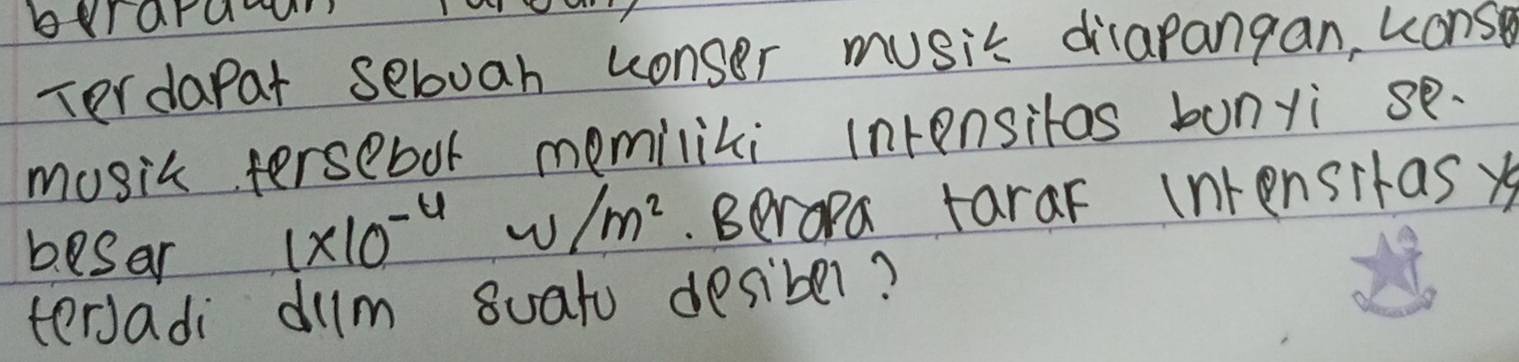 Terdapat sebuah konser musik dilapangan, konse
musik tersebut memiliki intensitas bunyi se-
besar 1x10⁻⁴ w/m². Berapa taraf intensitas yg
terjadi dlm suatu desibel?